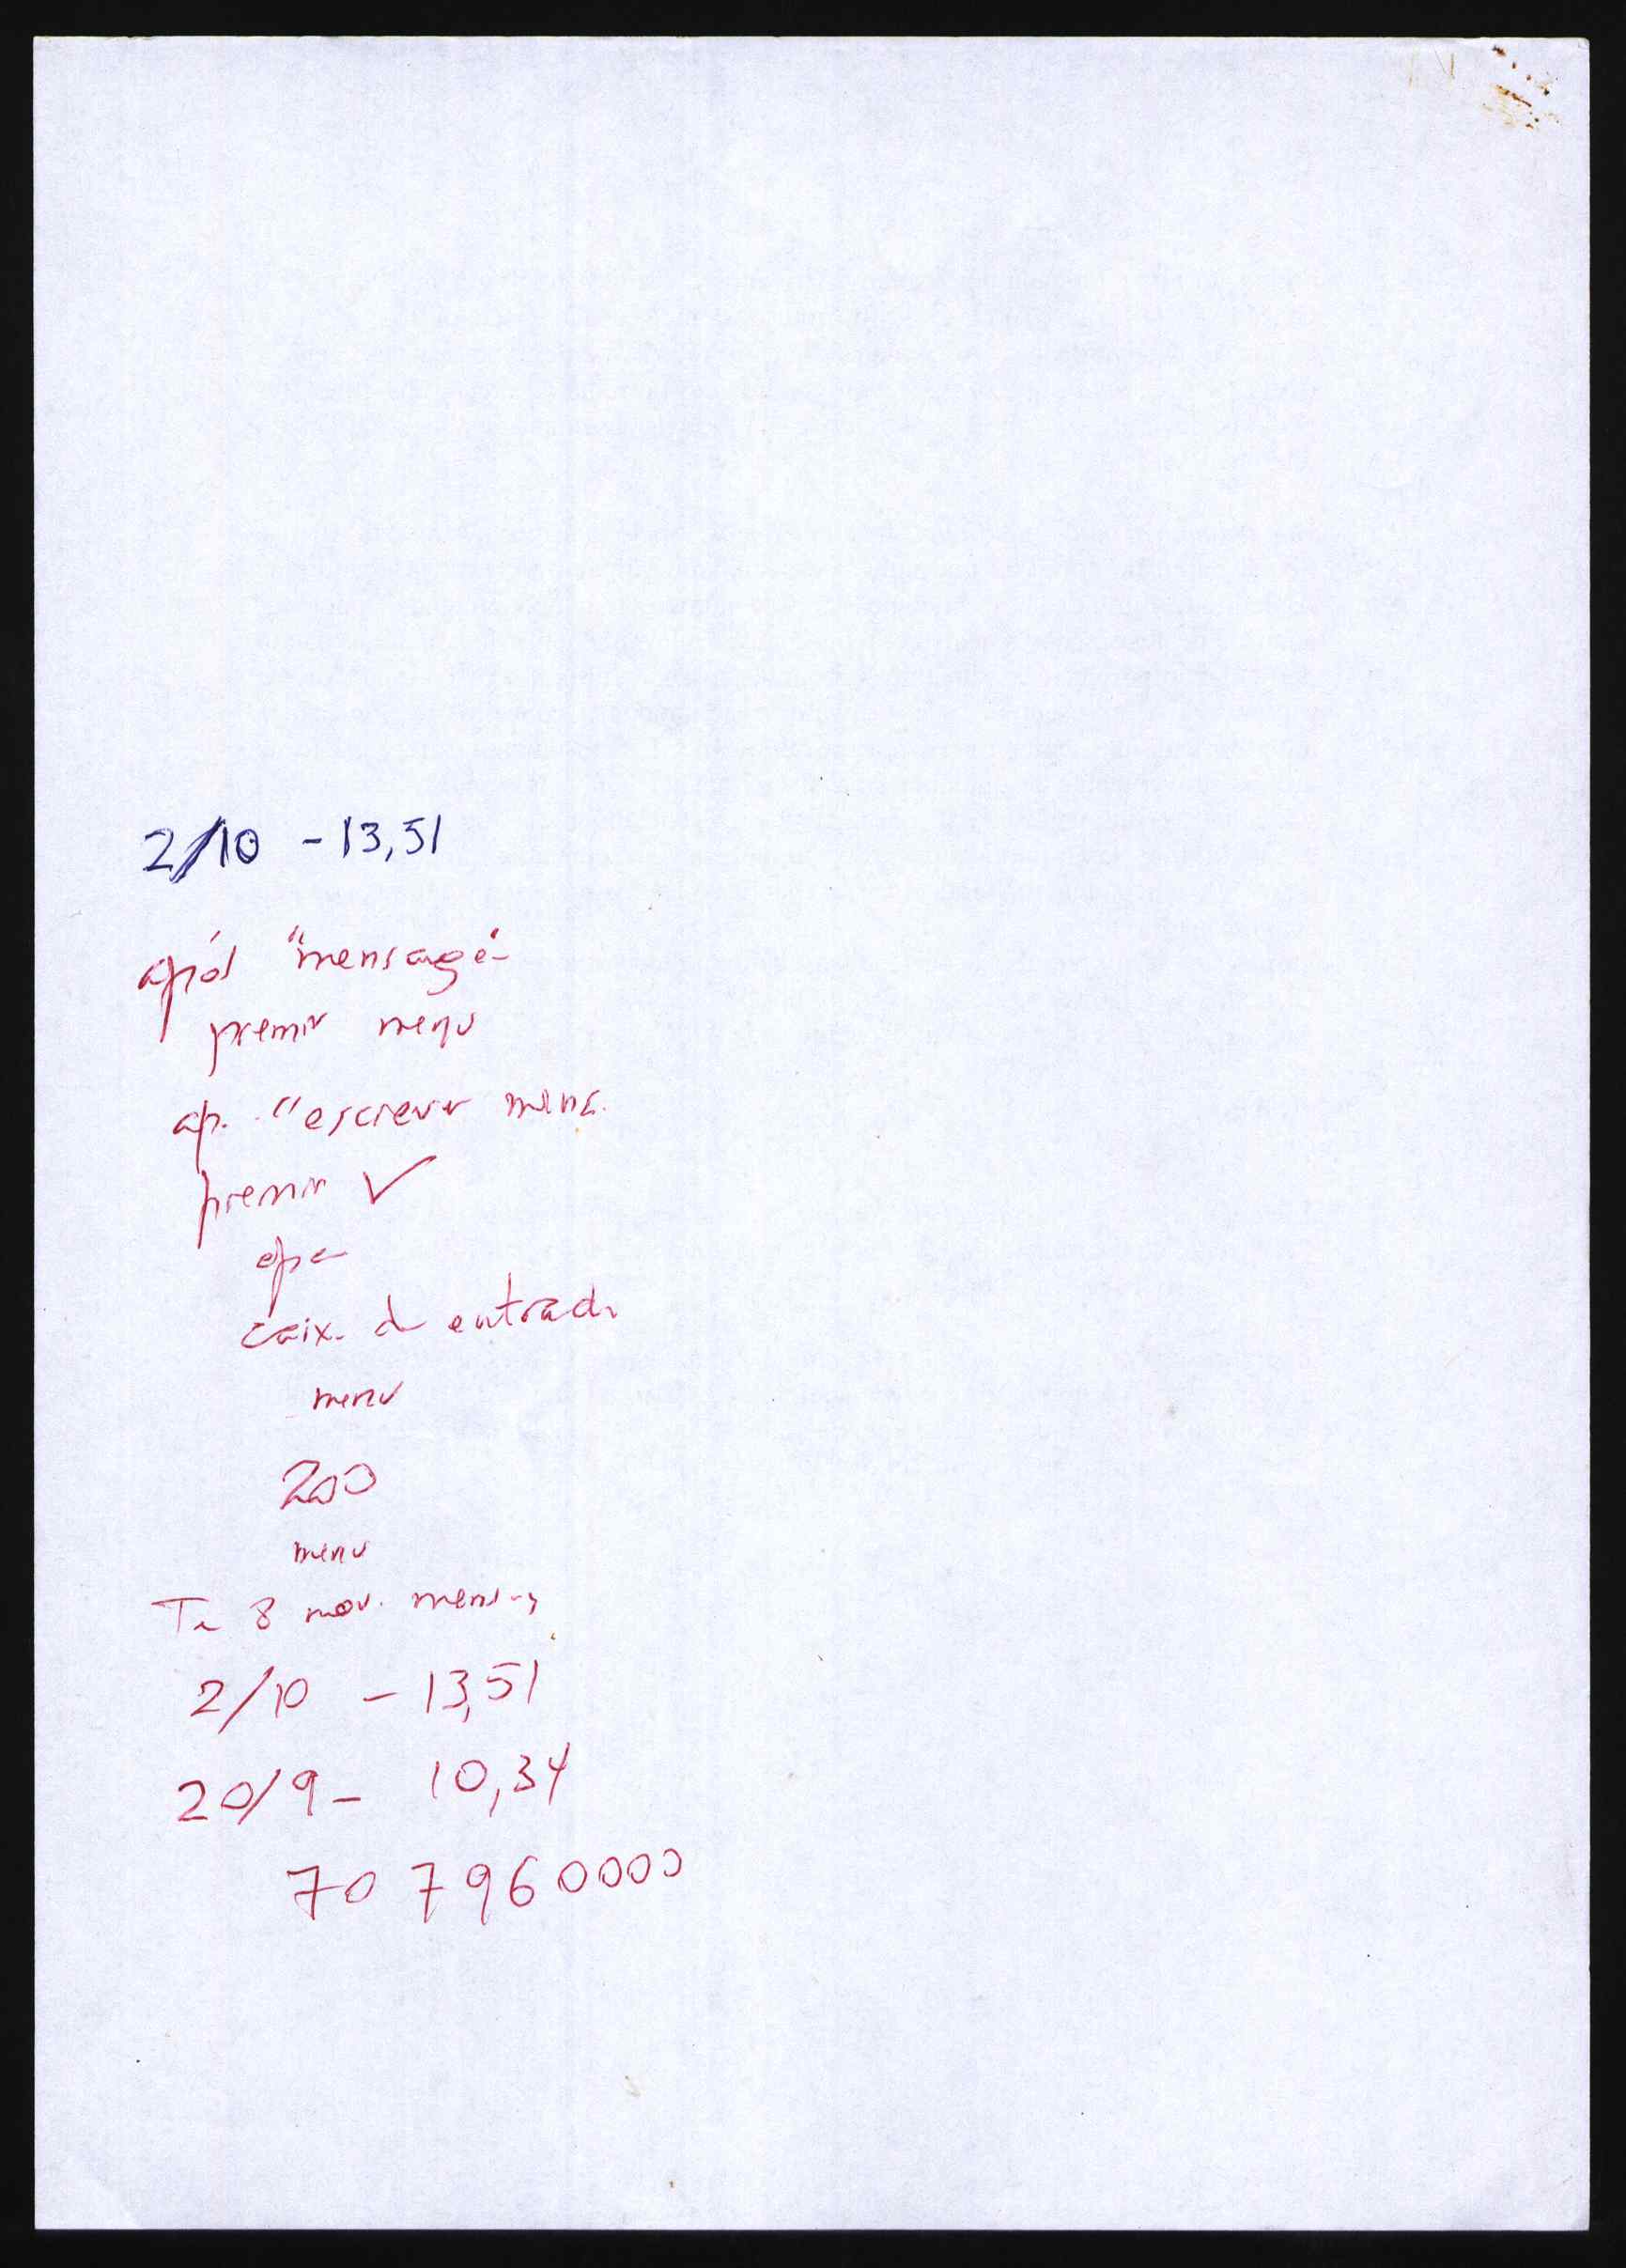 2/10 - 13,51
após "mensage"
premir menu
ap. "escrever mens.
premir ✓
caix. d entrada
menu
200
menu
Te 8 nov. mens
2/10 - 13,51
20/9 - 10,34
707960000